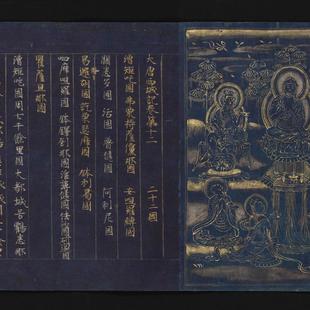 大唐西域記卷第十二 二十二國
漕矩吒國 弗栗恃薩儻那國 安呾羅縛國
闊悉多國 活國 瞢健國 阿利尼國
曷邏胡國 訖栗瑟摩國 鉢利曷國
呬摩呾羅國 鉢鐸創那國 淫薄健國
瞿薩旦那國
漕矩吒國周七千餘里國大都城号鶴悉那